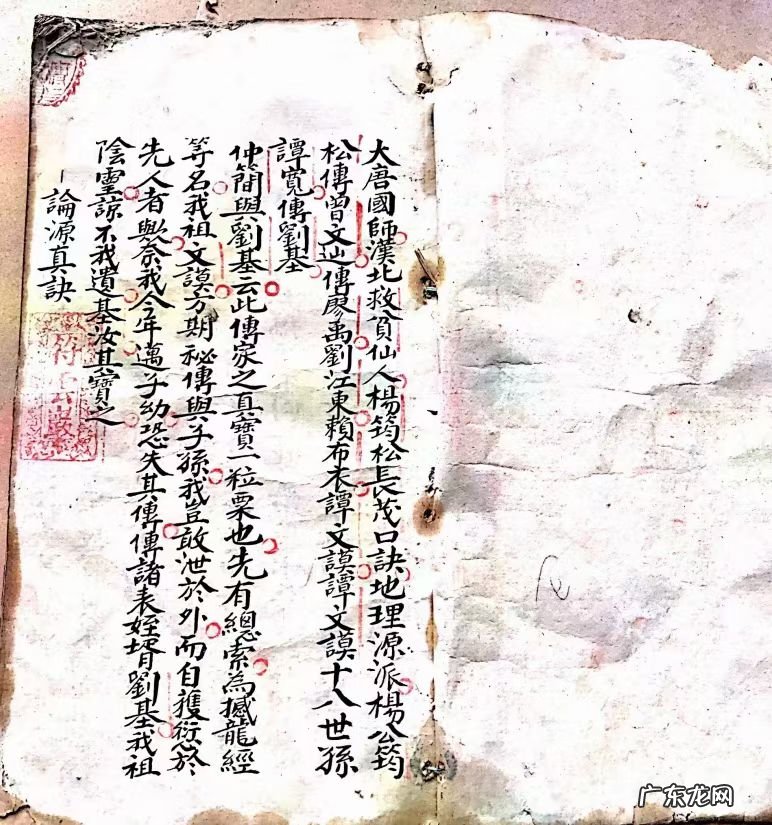 大唐國師漢北救貧仙人楊筠松長茂口訣地理源派楊公筠
松傳曾文辿傳廖禹劉江東賴布衣譚文謨譚文謨十八世孫
譚寬傳劉基
仲簡與劉基云此傳家之真寶一粒粟也先有總索為撼龍經
等名我祖文謨方期秘傳與子孫我豈敢泄於外而自獲愆於
先人者歟奈我今年邁子幼恐失其傳傳諸表姪壻劉基我祖
陰靈諒不我遺基汝其寶之
一論源真訣
广东龙网